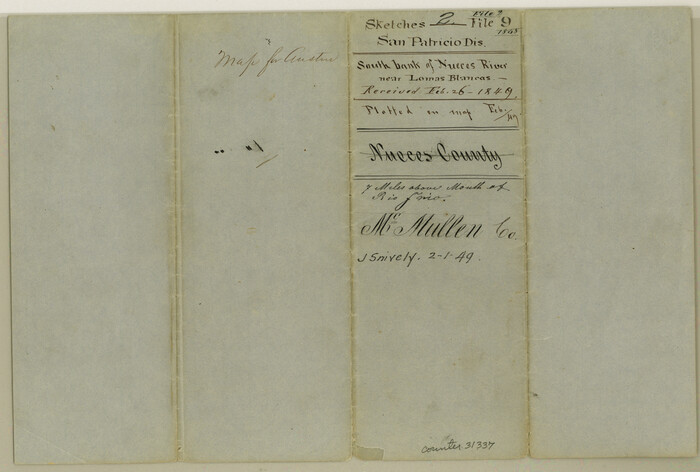 Map for Austin
File 9
Sketches 2 File 9
1848
San Patricio Dis.
South bank of Nueces River
near Lomas Blancas. —
Received Feb. 26 - 1849.
Plotted on map Feb. /49
Nueces County
7 Miles above Mouth of
Rio Frio.
Mc Mullen Co.
J Snively. 2-1-49.
counter 31337